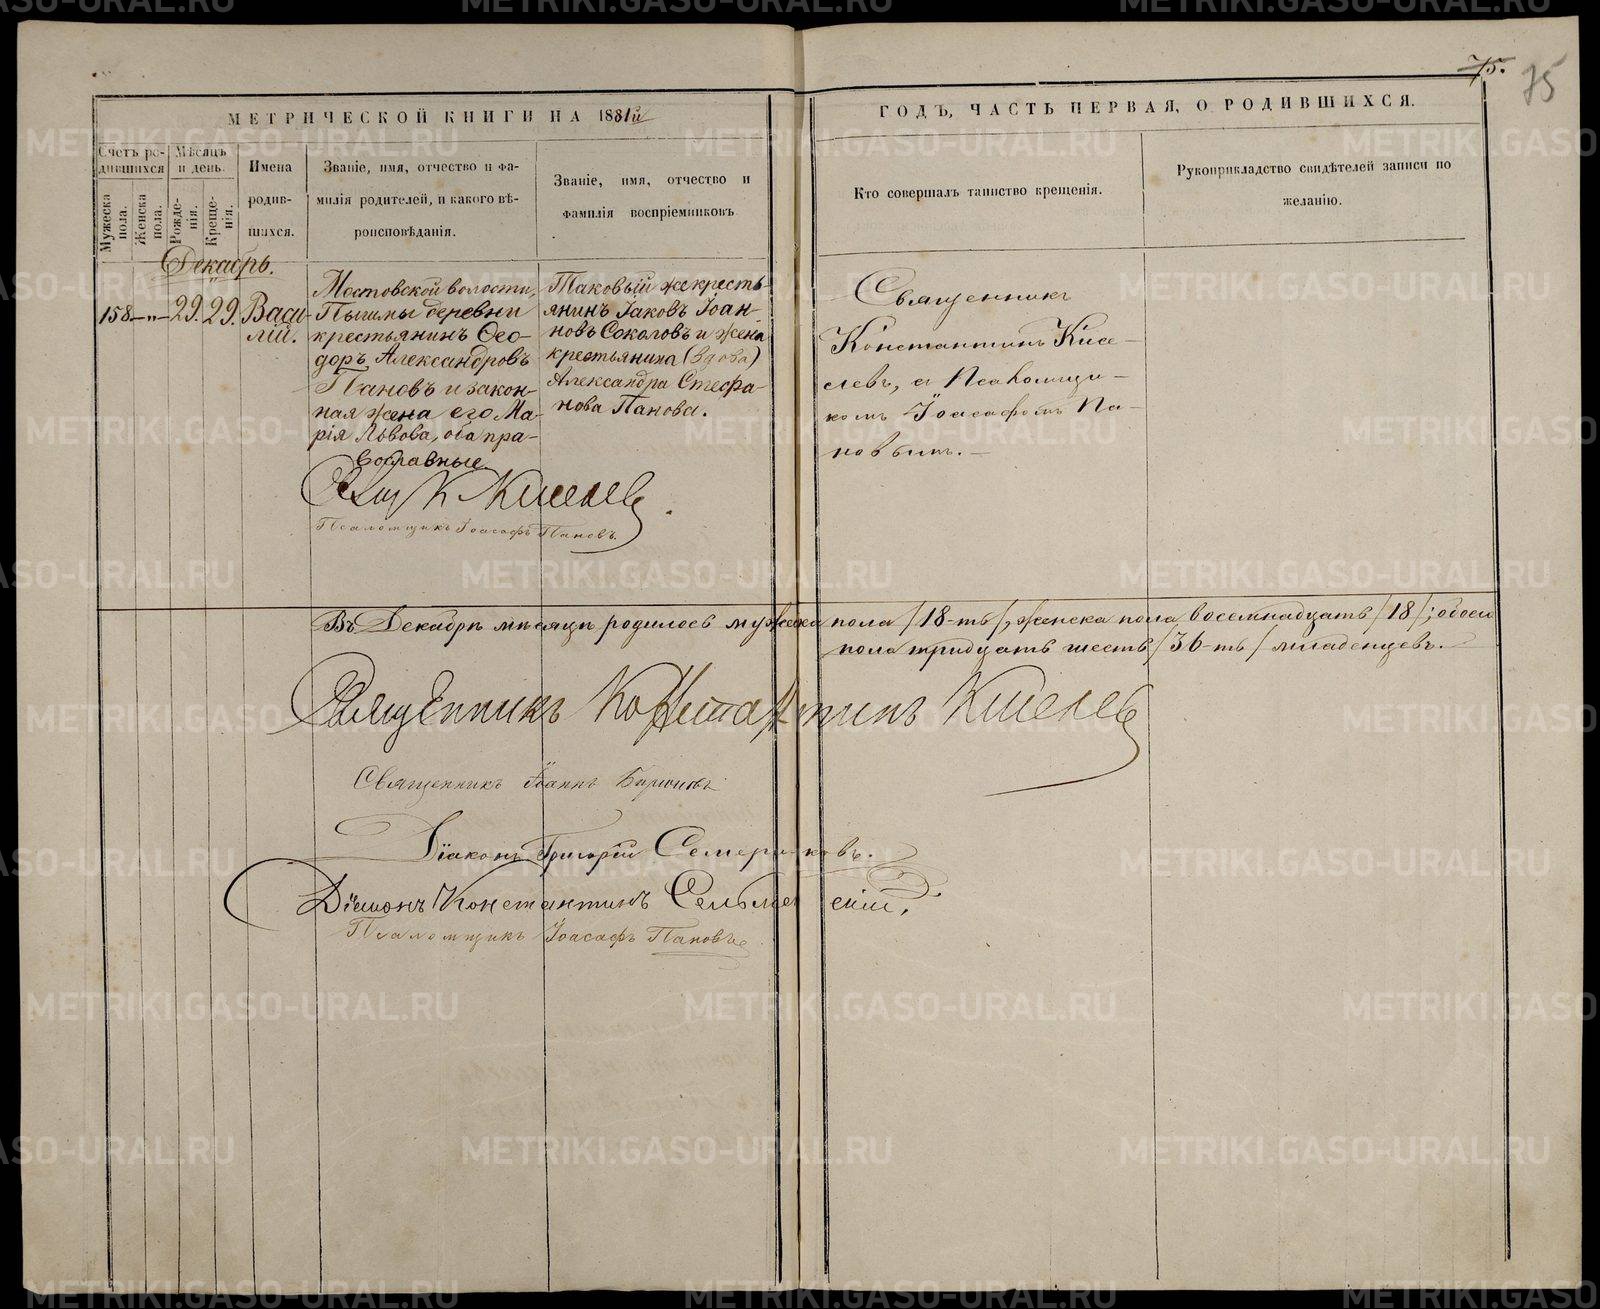 75.
75
МЕТРИЧЕСКОЙ КНИГИ НА 1881й
ГОДЪ, ЧАСТЬ ПЕРВАЯ, О РОДИВШИХСЯ.
Счетъ родившихся
Мужеска пола.
Женска пола.
Мѣсяцъ и день.
Рожденія.
Крещенія.
Имена
родив-
шихся.
Званіе, имя, отчество и фа-
милія родителей, и какого вѣ-
роисповѣданія.
Званіе, имя, отчество и
фамилія воспріемниковъ.
Кто совершалъ таинство крещенія.
Рукоприкладство свидѣтелей записи по
желанію.
Декабрь.
158. – „ – 29. 29.
Васи-
лій.
Мостовской волости,
Пышмы деревни
крестьянинъ Ѳео-
доръ Александровъ
Пановъ и закон-
ная жена его Ма-
рія Львова, оба пра-
вославные.
Таковый же кресть-
янинъ Іаковъ Іоан-
новъ Соколовъ и жена
крестьянина (вдова)
Александра Стефа-
нова Панова.
Священникъ
Константинъ Кисе-
левъ, съ Псаломщи-
комъ Іоасафомъ Па-
новымъ.
Свящ К Киселевъ
Псаломщикъ Іоасафъ Пановъ.
Въ Декабрѣ мѣсяцѣ родилось мужеска пола /18-ть/, женска пола восемнадцать /18/; обоего
пола тридцать шесть /36-ть/ младенцевъ.
Священникъ Константинъ Киселевъ
Священникъ Іоаннъ
Діаконъ Григорій Семериковъ.
Діаконъ Константинъ
Псаломщикъ Іоасафъ Пановъ
METRIKI.GASO-URAL.RU